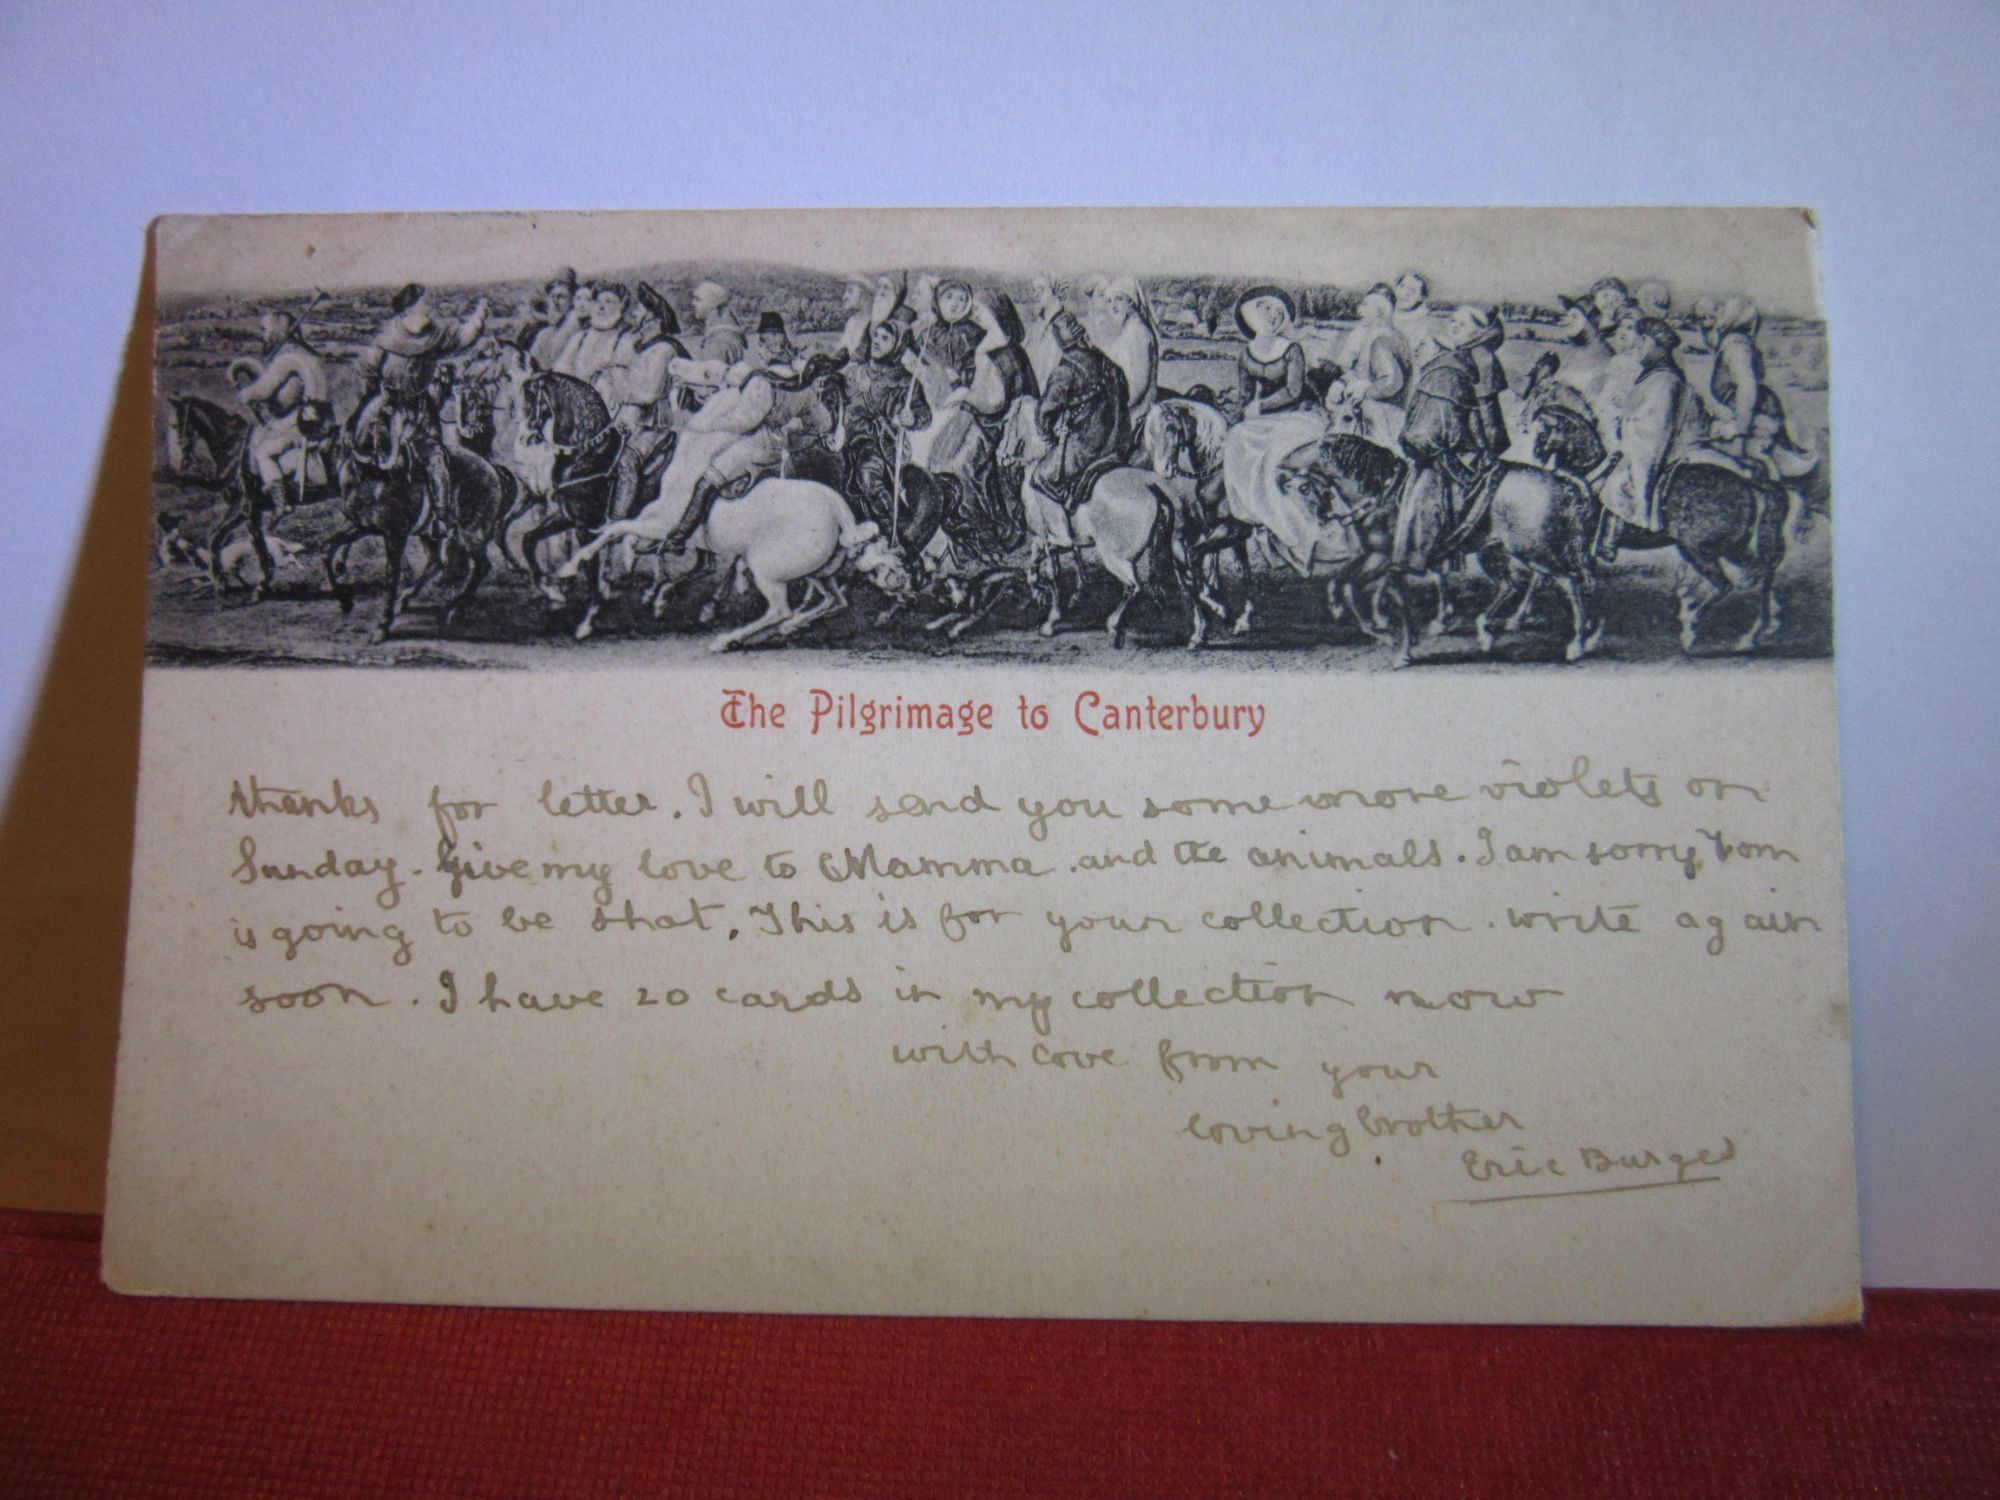 The Pilgrimage to Canterbury
thanks for letter. I will send you some more violets on
Sunday. Give my love to Mamma and the animals. I am sorry Tom
is going to be shot. This is for your collection. write again
soon. I have 20 cards in my collection now
with love from your
loving brother
Eric Burge